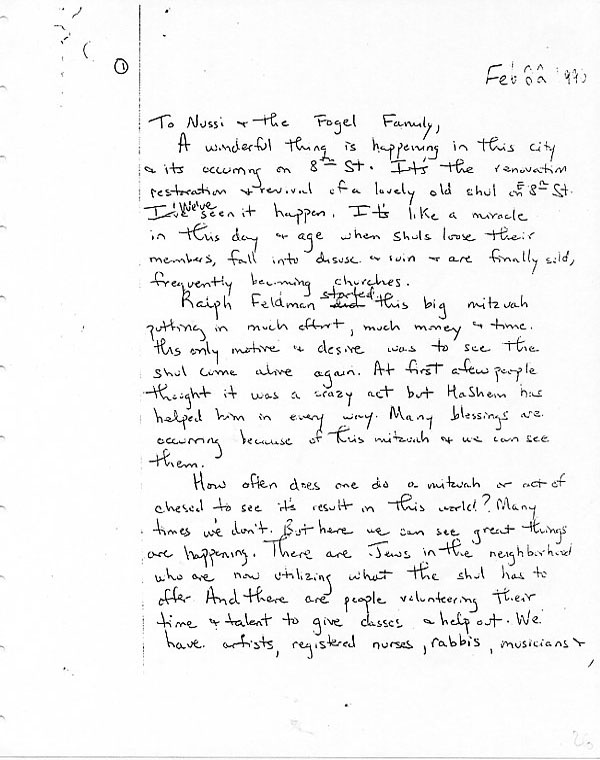 ①
Feb
To Nussi + the Fogel Family,
A wonderful thing is happening in this city
+ its occurring on 8th St. It's the renovation
restoration + revival of a lovely old shul on E 8th St.
I've We've seen it happen. It's like a miracle
in this day + age when shuls loose their
members, fall into disuse + ruin + are finally sold,
frequently becoming churches.
Ralph Feldman did started this big mitzvah
putting in much effort, much money + time.
His only motive + desire was to see the
shul come alive again. At first a few people
thought it was a crazy act but HaShem has
helped him in every way. Many blessings are
occurring because of this mitzvah + we can see
them.
How often does one do a mitzvah or act of
chesed to see it's result in this world? Many
times we don't. But here we can see great things
are happening. There are Jews in the neighborhood
who are now utilizing what the shul has to
offer. And there are people volunteering their
time + talent to give classes + help out. We
have artists, registered nurses, rabbis, musicians +